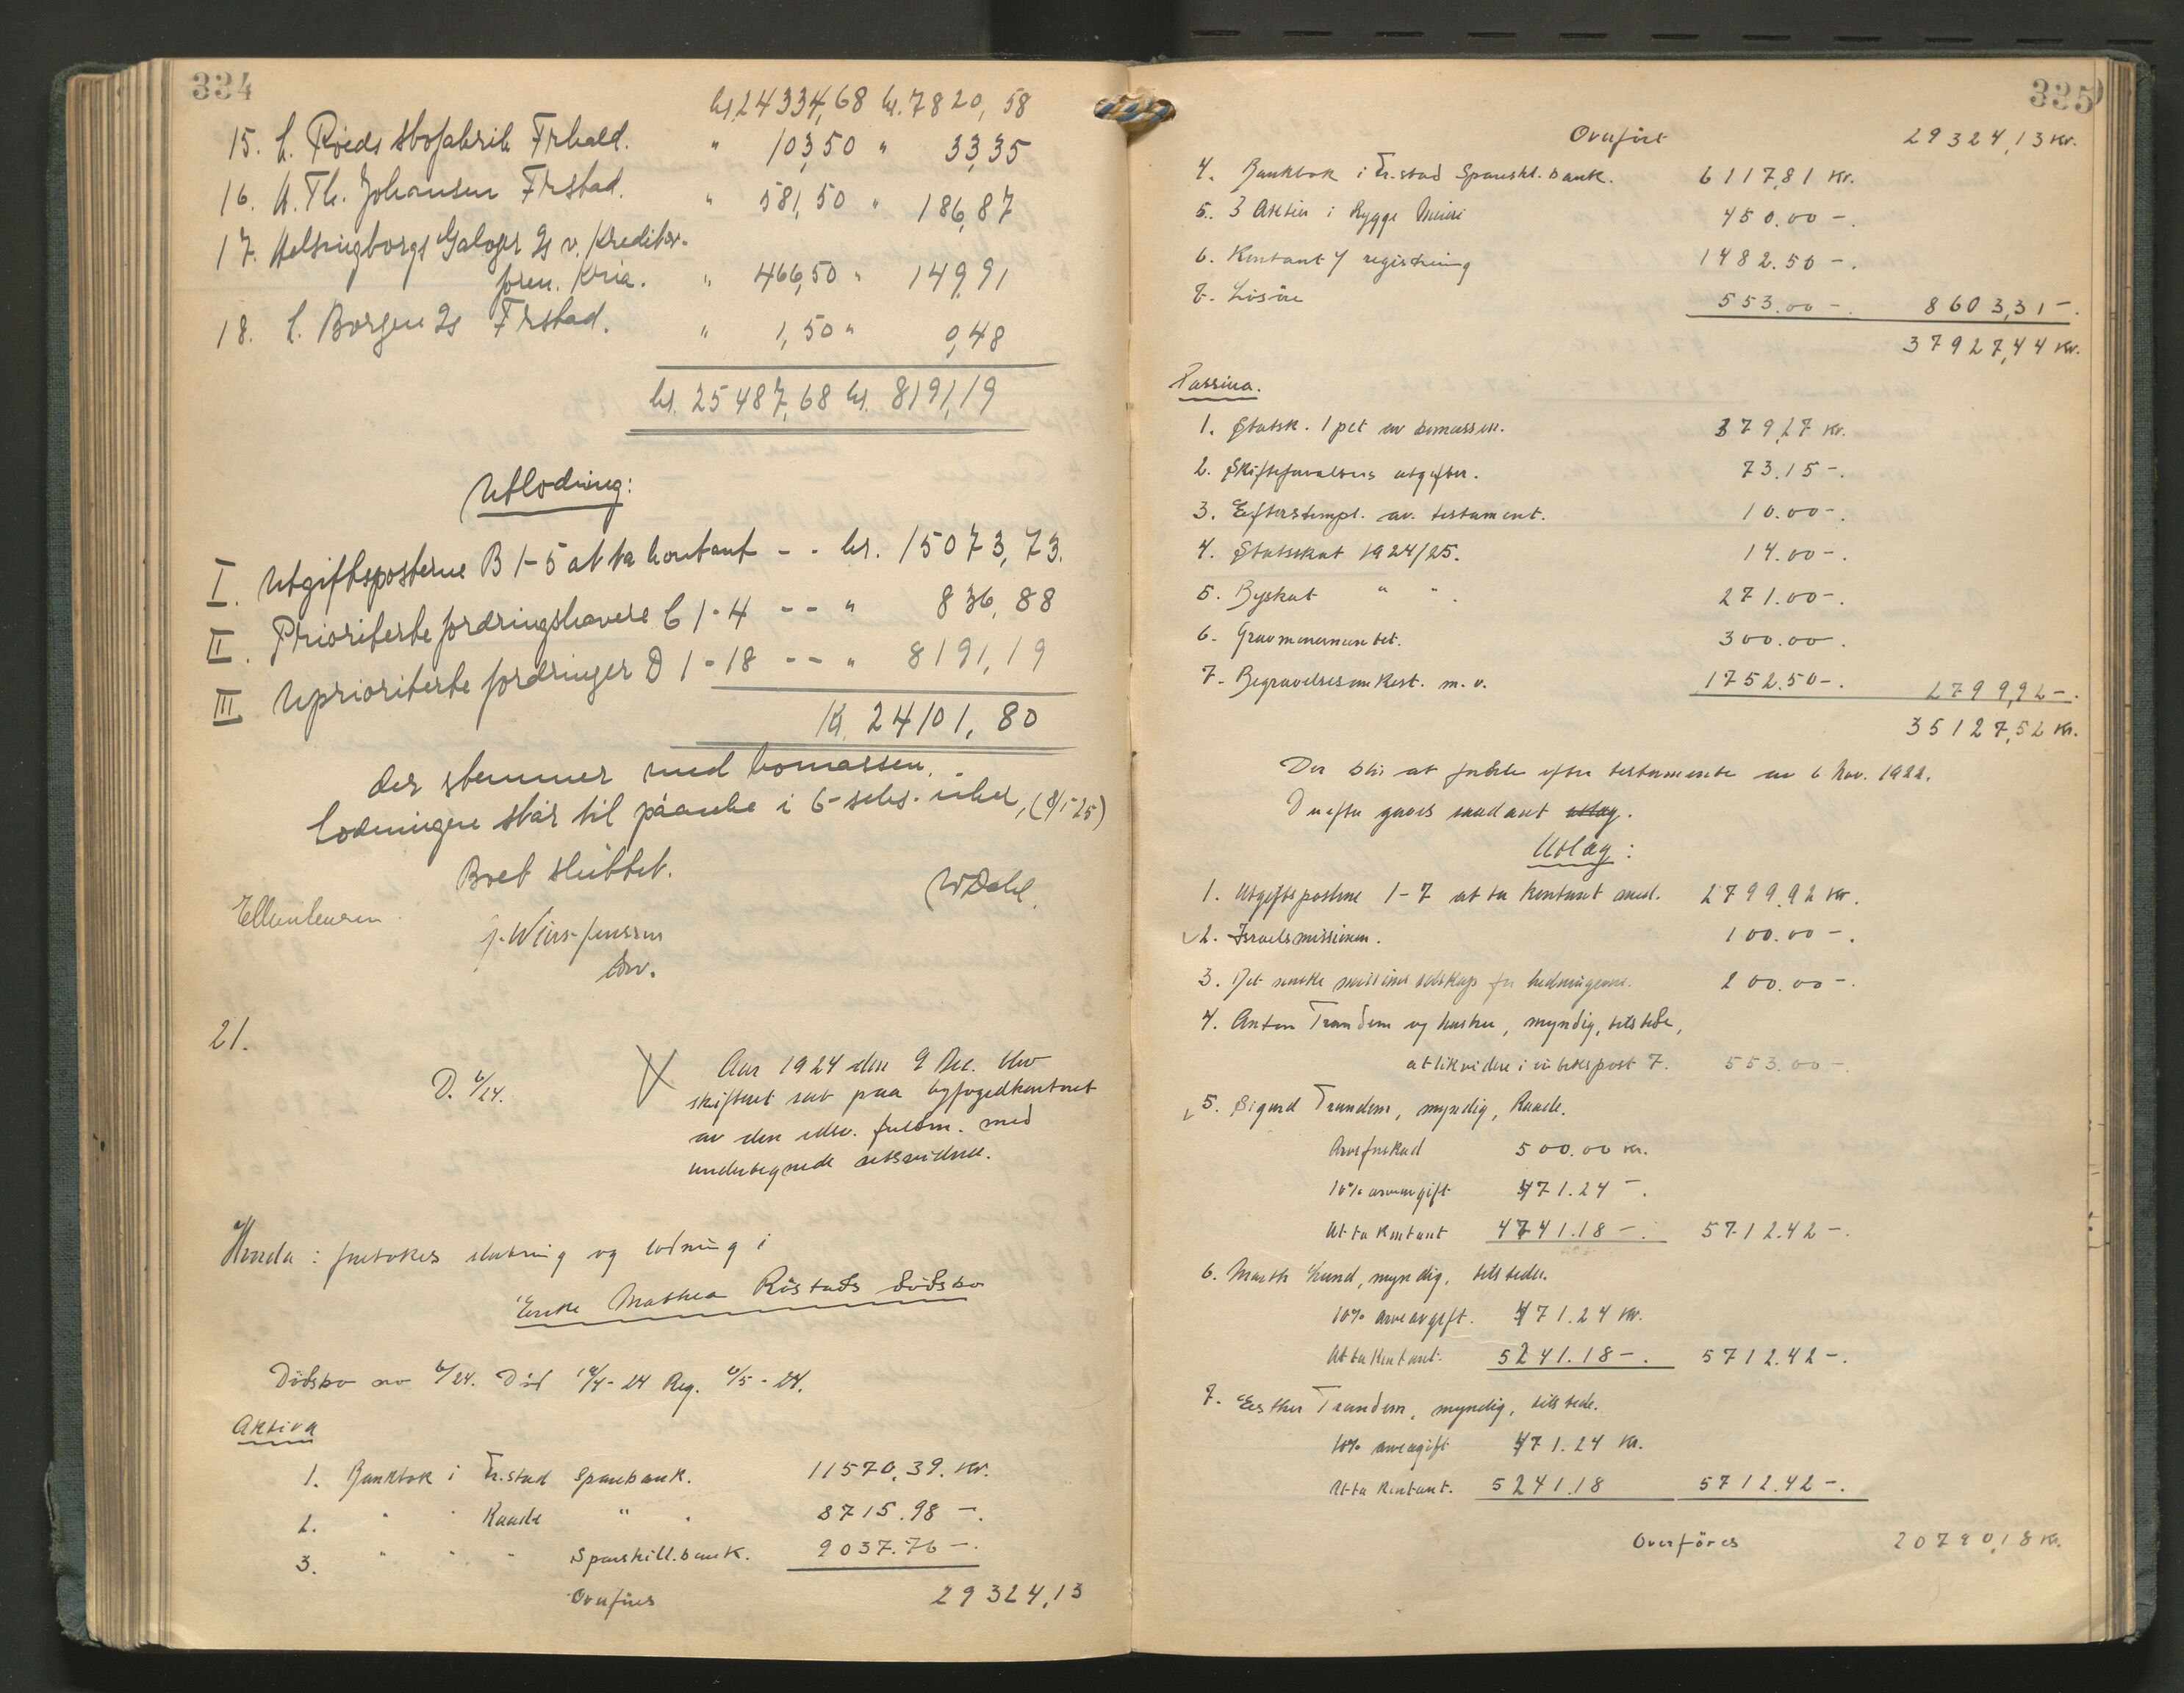 334
kr. 24334,68 kr. 7820,58
15. C. Röeds skofabrik Frhald. " 103,50 " 33,35
16. A. Th. Johansen Frstad. " 581,50 " 186,87
17. Helsingborgs Galoger As v. Kreditor-
foren. Kria. " 466,50 " 149,91
18. C. Borgen As Frstad. " 1,50 " 0,48
kr. 25487,68 kr. 8191,19
Utlodning:
I. Utgiftsposterne B 1-5 at ta kontant - - kr. 15073,73.
II. Prioriterte fordringshavere C 1-4 - - " 836,88
III Uprioriterte fordringer D 1-18 - - " 8191,19
Kr. 24101,80
der stemmer med bomassen.
Lodningen står til påanke i 6-seks-uker, (8/1-25)
Boet sluttet.
WDahl.
J. Wiers-Jenssen
21.
D. 6/24.
Aar 1924 den 9 Dec. blev
skifteret sat paa byfogedkontoret
av den edsv. fuldm. med
undertegnede retsvidner.
Hvorda: foretokes slutning og lodning i
Enke Mathea Ristads dödsbo
Dödsbo no 6/24. Död 14/4-24 Reg. 6/5-24.
Aktiva
1. Bankbok i Fr.stad Sparebank. 11570,39. Kr.
2. " " Raade " " 8715.98 -.
3. " " " Spareskill.bank. 9037.76 -.
Overföres 29324,13
335
Overfört 29324,13 Kr.
4. Bankbok i Fr.stad Spareskl.bank. 6117,81 Kr.
5. 3 Aktier i Rygge Meieri 450.00 -.
6. Kontant / registrering 1482.50 -.
7. Lösöre 553.00 -. 8603,31 -.
37927,44 Kr.
Passiva.
1. Statsk. 1 pct av bomassen. 379,27 Kr.
2. Skifteforvalterens utgifter. 73.15 -.
3. Efterstempl. av testament. 10.00 -.
4. Statsskat 1924/25. 14.00 -.
5. Byskat " " . 271.00 -.
6. Gravmonumentet. 300.00 .
7. Begravelsesomkost. m.v. 1752.50 -. 2799,92 -.
35127,52 Kr.
Der blir at fordele efter testamente av 6 Nov. 1922.
Derefter gjöres saadant utlæg.
Utlæg:
1. Utgiftsposterne 1-7 at ta kontant med. 2799.92 Kr.
2. Israelsmissionen. 100.00 -.
3. Det norske missions selskap for hedningene. 200.00 -.
4. Anton Trandem og hustru, myndig, tilstede,
at likvidere i indtektspost 7. 553.00 -.
5. Sigurd Trandem, myndig, Raade.
Arvsforskud 500.00 Kr.
10% arveavgift 471.24 -.
At ta kontant 4741.18 -. 5712.42 -.
6. Marth Lund, myndig, tilstede.
10% arveavgift. 471.24 Kr.
At ta kontant. 5241.18 -. 5712.42 -.
7. Esther Trandem, myndig, tilstede.
10% arveavgift 471.24 Kr.
At ta kontant. 5241.18 5712.42 -.
Overföres 20790,18 Kr.